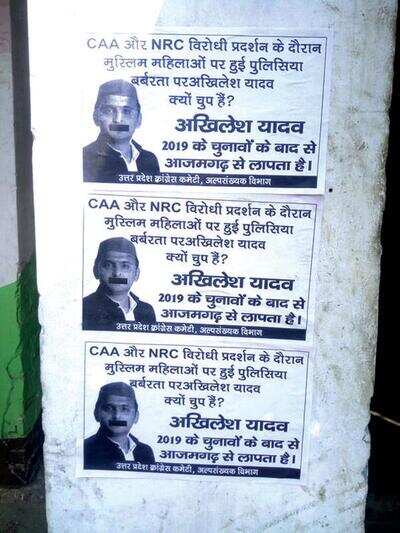 CAA और NRC विरोधी प्रदर्शन के दौरान
मुस्लिम महिलाओं पर हुई पुलिसिया
बर्बरता परअखिलेश यादव
क्यों चुप हैं?
अखिलेश यादव
2019 के चुनावों के बाद से
आजमगढ़ से लापता है।
उत्तर प्रदेश कांग्रेस कमेटी, अल्पसंख्यक विभाग
CAA और NRC विरोधी प्रदर्शन के दौरान
मुस्लिम महिलाओं पर हुई पुलिसिया
बर्बरता परअखिलेश यादव
क्यों चुप हैं?
अखिलेश यादव
2019 के चुनावों के बाद से
आजमगढ़ से लापता है।
उत्तर प्रदेश कांग्रेस कमेटी, अल्पसंख्यक विभाग
CAA और NRC विरोधी प्रदर्शन के दौरान
मुस्लिम महिलाओं पर हुई पुलिसिया
बर्बरता परअखिलेश यादव
क्यों चुप हैं?
अखिलेश यादव
2019 के चुनावों के बाद से
आजमगढ़ से लापता है।
उत्तर प्रदेश कांग्रेस कमेटी, अल्पसंख्यक विभाग